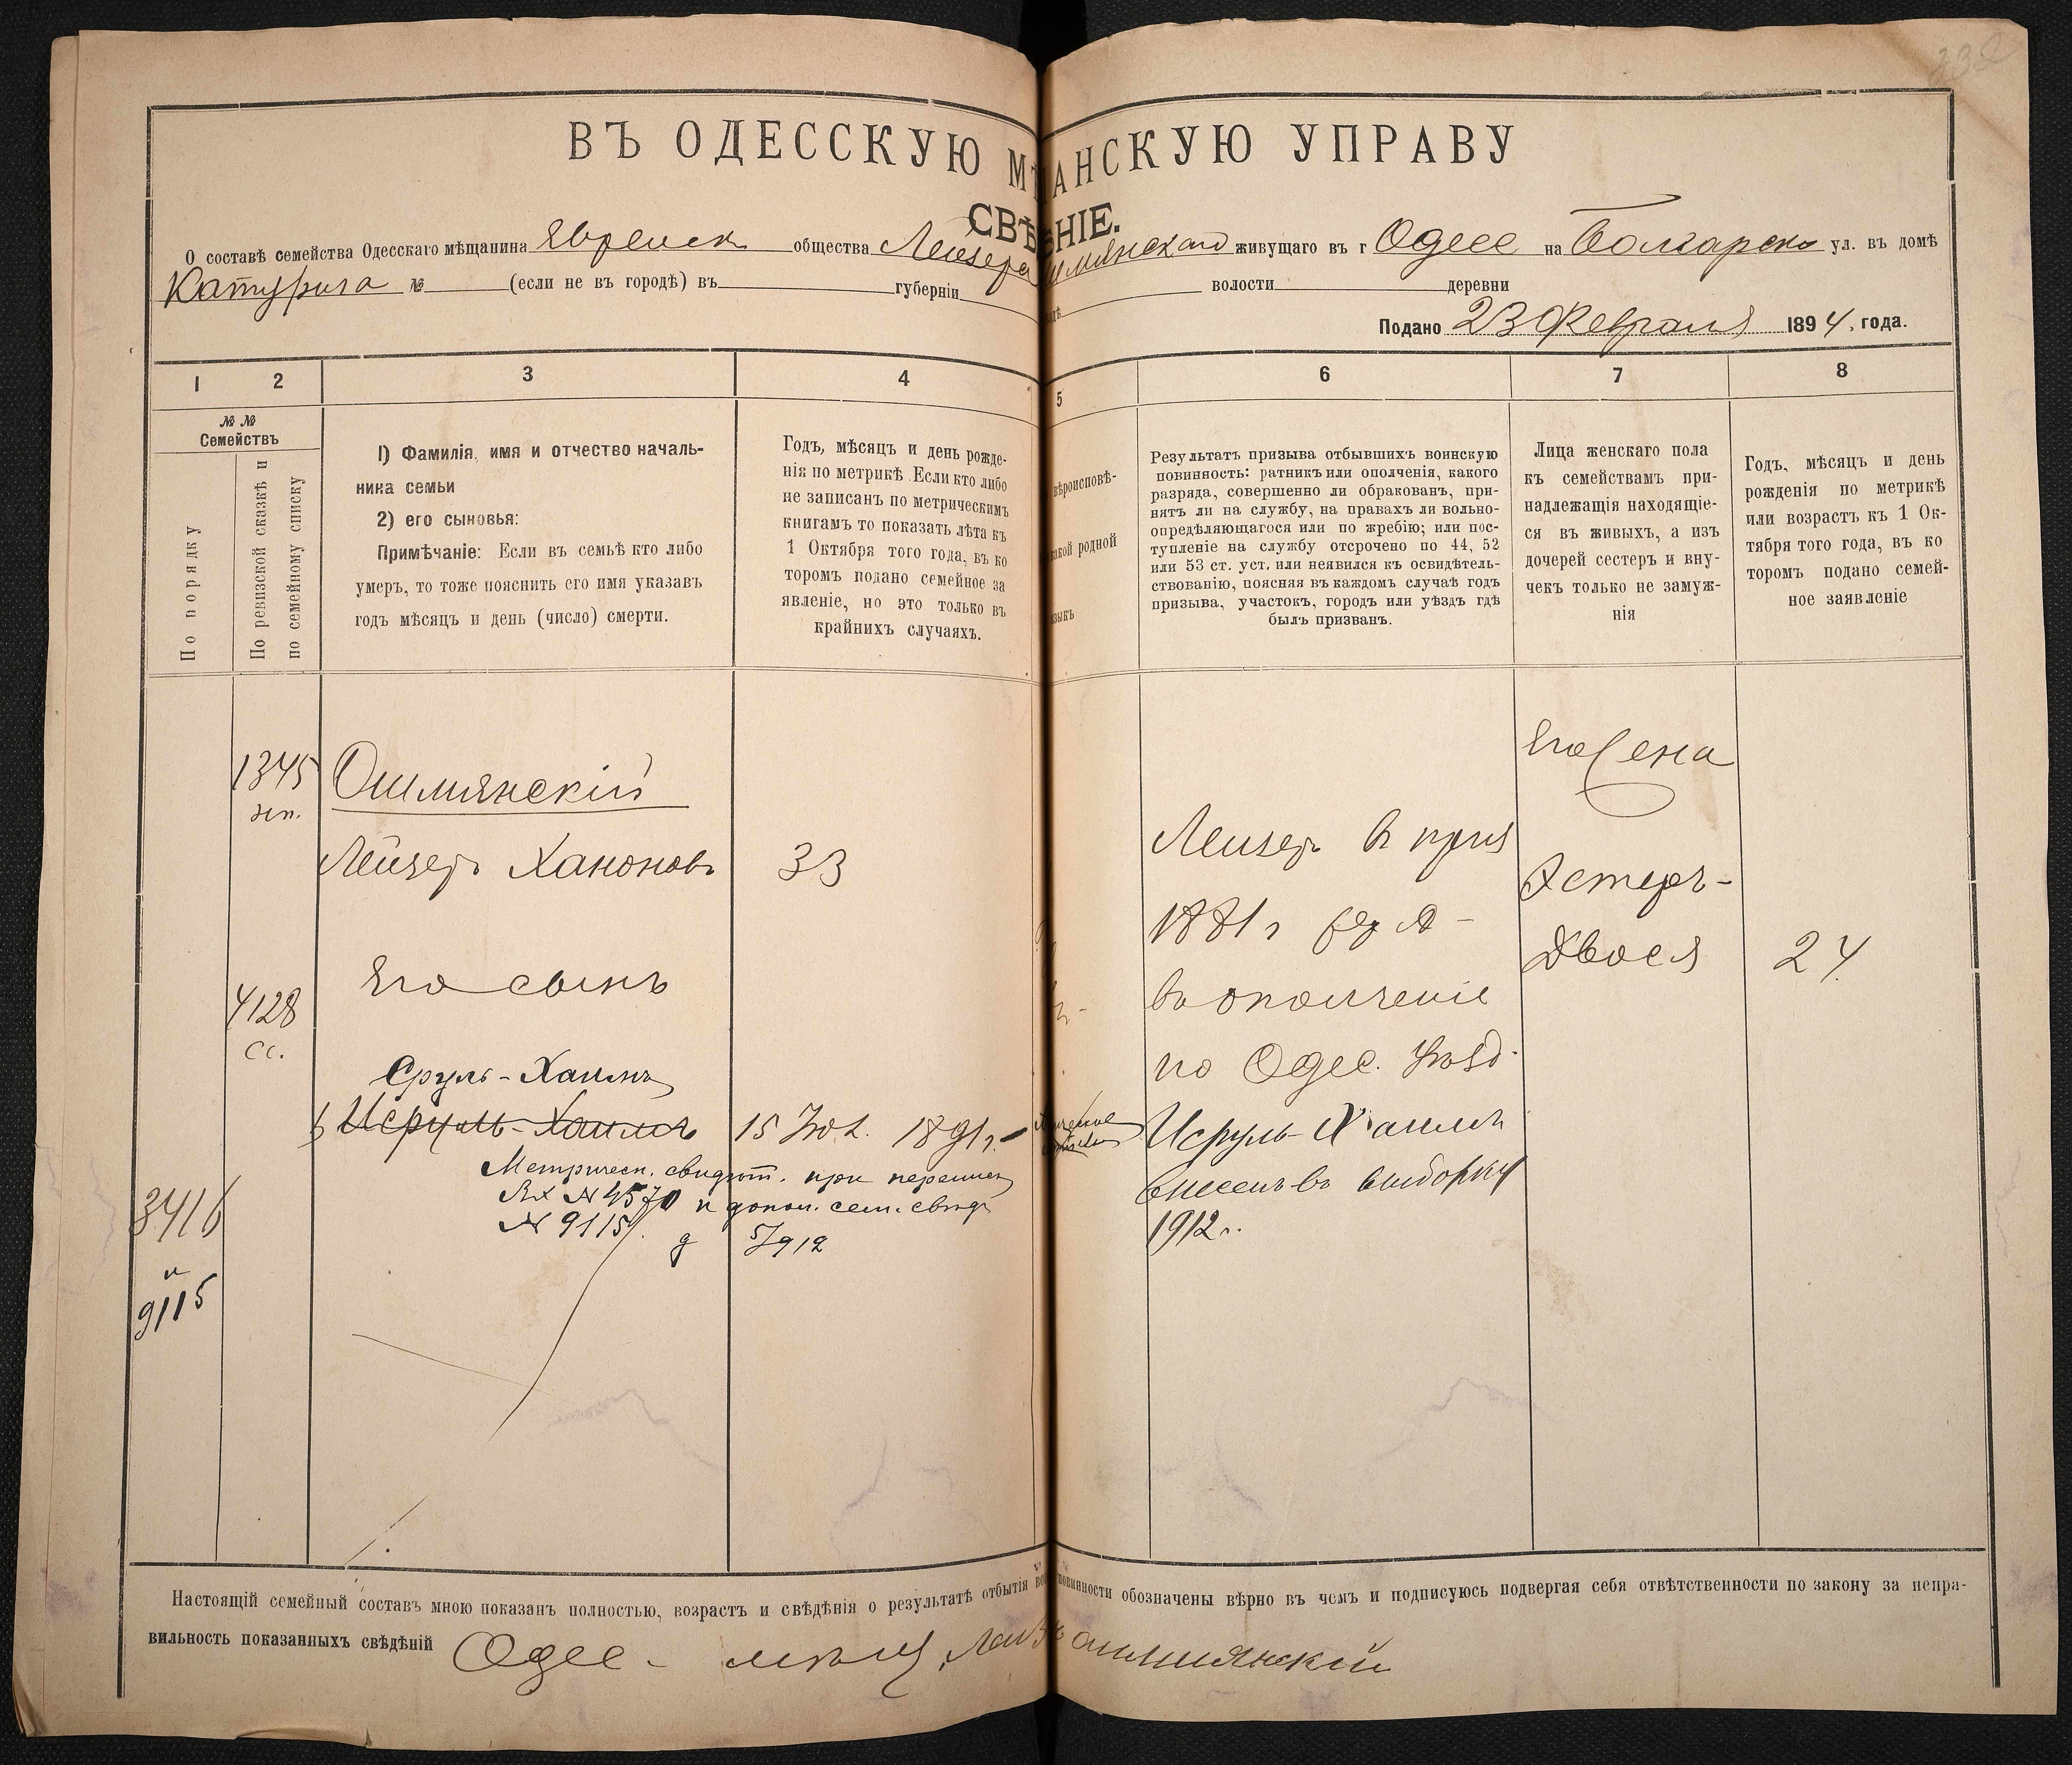 ВЪ ОДЕССКУЮ МѢ АНСКУЮ УПРАВУ
СВѢ НІЕ.
О составѣ семейства Одесскаго мѣщанина Еврейск общества Лейзера шмянскаго живущаго въ г Одессе на Болгарско ул. въ домѣ
Катурига № (если не въ городѣ) въ губерніи волости деревни
Подано 23 Февраля 1894. года.
1 2 3 4 5 6 7 8
№ №
Семействъ
По порядку
По ревизской сказкѣ и
по семейному списку
1) Фамилія, имя и отчество началь-
ника семьи
2) его сыновья:
Примѣчаніе: Если въ семьѣ кто либо
умеръ, то тоже пояснить его имя указавъ
годъ мѣсяцъ и день (число) смерти.
Годъ, мѣсяцъ и день рожде-
нія по метрикѣ Если кто либо
не записанъ по метрическимъ
книгамъ то показать лѣта къ
1 Октября того года, въ ко
торомъ подано семейное за
явленіе, но это только въ
крайнихъ случаяхъ.
вѣроисповѣ-
какой родной
языкъ
Результатъ призыва отбывшихъ воинскую
повинность: ратникъ или ополченія, какого
разряда, совершенно ли обракованъ, при-
нятъ ли на службу, на правахъ ли вольно-
опредѣляющагося или по жребію; или пос-
тупленіе на службу отсрочено по 44, 52
или 53 ст. уст. или неявился къ освидѣтель-
ствованію, поясняя въ каждомъ случаѣ годъ
призыва, участокъ, городъ или уѣздъ гдѣ
былъ призванъ.
Лица женскаго пола
къ семействамъ при-
надлежащія находящіе-
ся въ живыхъ, а изъ
дочерей сестеръ и вну-
чекъ только не замуж-
нія
Годъ, мѣсяцъ и день
рожденія по метрикѣ
или возрастъ къ 1 Ок-
тября того года, въ ко
торомъ подано семей-
ное заявленіе
1345
Ошмянскій
Лейзеръ Хаконовъ 33
Его сынъ
4128
сс.
Сруль-Хаимъ
Исруль-Хаимъ 15 Іюл. 1891г.
Метрическ. свидѣт. при перепис
Вх №4570 и допол. сем. свид
№ 9115
д 5/912
3416
и
9115
Лейзеръ въ приз
1881г
въ ополченіе
по Одес. Уѣзд.
Исруль-Хаимъ
внесенъ въ выборку
1912г.
Его жена
Эстеръ-
Двося 24
Настоящій семейный составъ мною показанъ полностью, возрастъ и свѣдѣнія о результатѣ отбытія во повинности обозначены вѣрно въ чемъ и подписуюсь подвергая себя отвѣтственности по закону за непра-
вильность показанныхъ свѣдѣній Одес. мѣщ. Лейз Ошмянскій